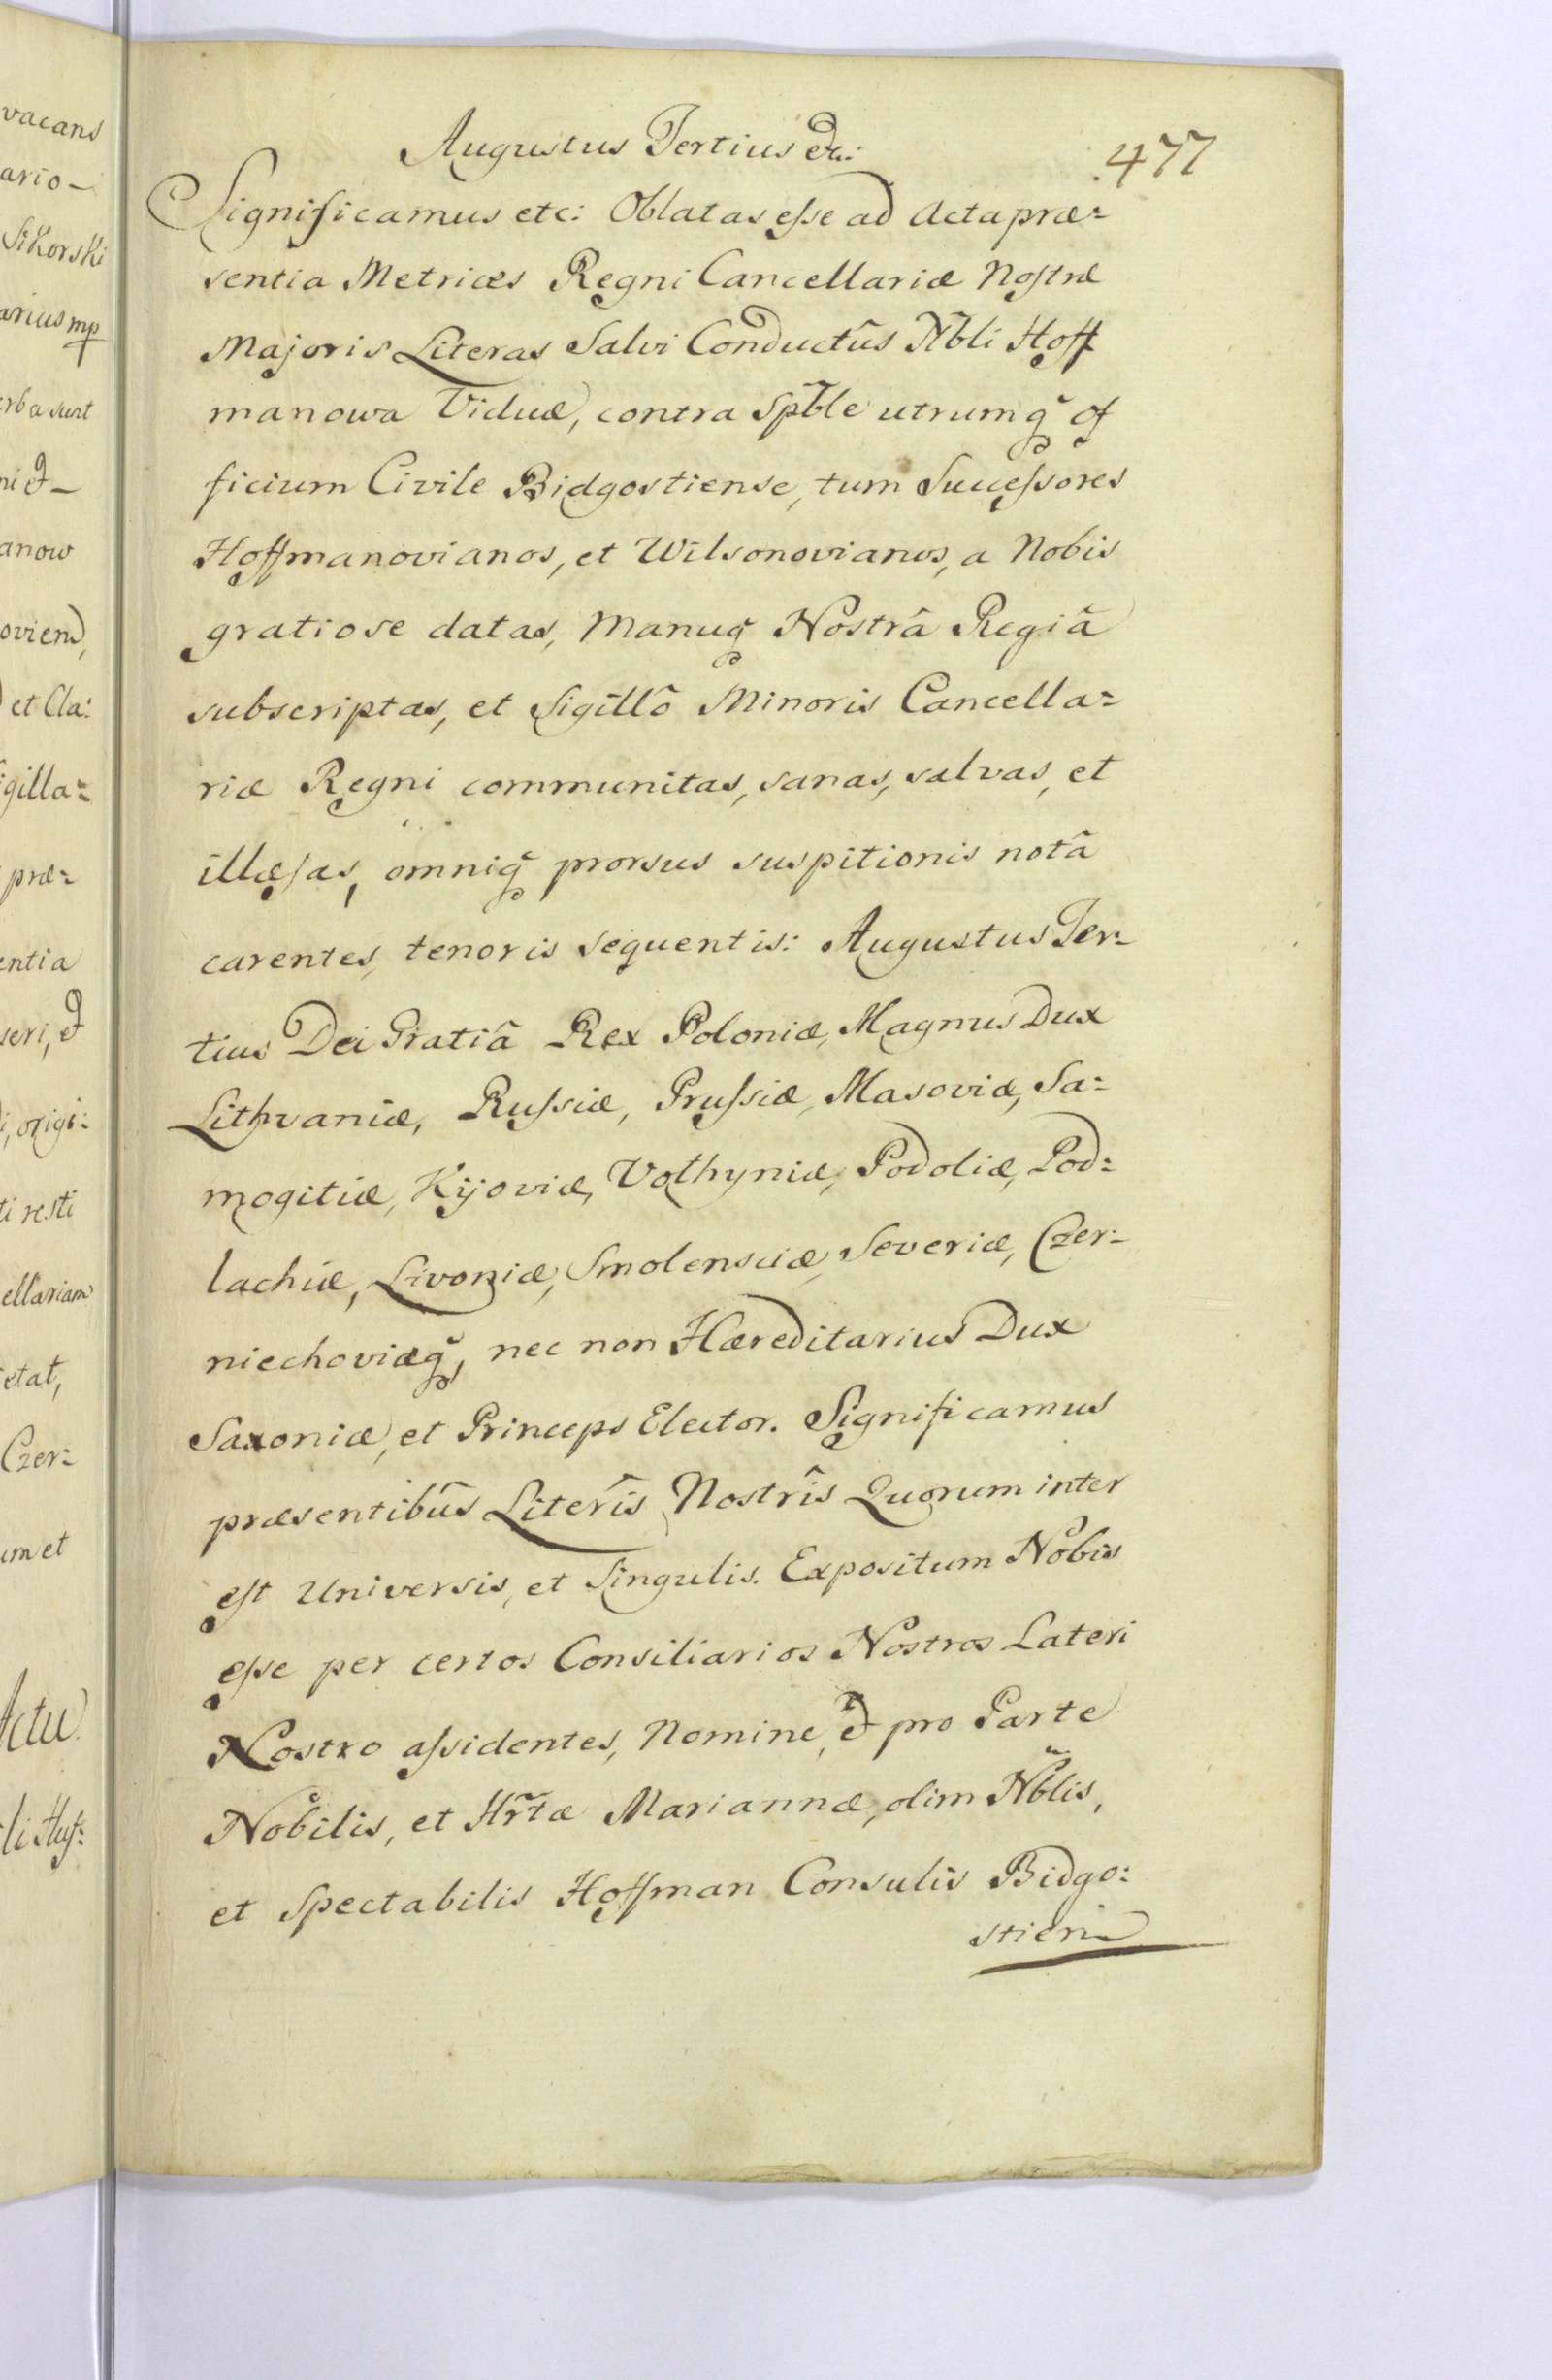 Augustus Tertius etc:
477
Significamus etc: Oblatas esse ad Acta præ=
sentia Metrices Regni Cancellariæ Nostræ
Majoris Literas Salvi Conductûs Nbli Hoff
manowa Viduæ, contra Spble utrumq̃ of
ficium Civile Bidgostiense, tum Successores
Hoffmanovianos, et Wilsonovianos, a Nobis
gratiose datas, Manuq̃ Nostrâ Regiâ
subscriptas, et Sigillô Minoris Cancella=
riæ Regni communitas, sanas, salvas, et
illæsas, omniq̃ prorsus suspitionis notâ
carentes, tenoris sequentis: Augustus Ter=
tius Dei Gratiâ Rex Poloniæ, Magnus Dux
Lithvaniæ, Russiæ, Prussiæ, Masoviæ, Sa=
mogitiæ, Kijoviæ, Volhyniæ, Podoliæ, Pod=
lachiæ, Livoniæ, Smolensciæ, Severiæ, Czer=
niechoviæq̃, nec non Hæreditarius Dux
Saxoniæ, et Princeps Elector. Significamus
præsentibûs Literîs Nostrîs Quorum inter
est Universis, et Singulis. Expositum Nobis
esse per certos Consiliarios Nostros Lateri
Nostro assidentes, Nomine, et pro Parte
Nobilis, et Hr̃tæ Mariannæ, olim Nblis,
et Spectabilis Hoffman Consulis Bidgo=
stien
vacans
ario-
Sikorski
arius mp
erba sunt
ni et
anow
ovien,
et Cla:
igilla=
præ=
entia
seri, et
i, origi=
ti resti
ellariam
etat,
Czer=
um et
Actu